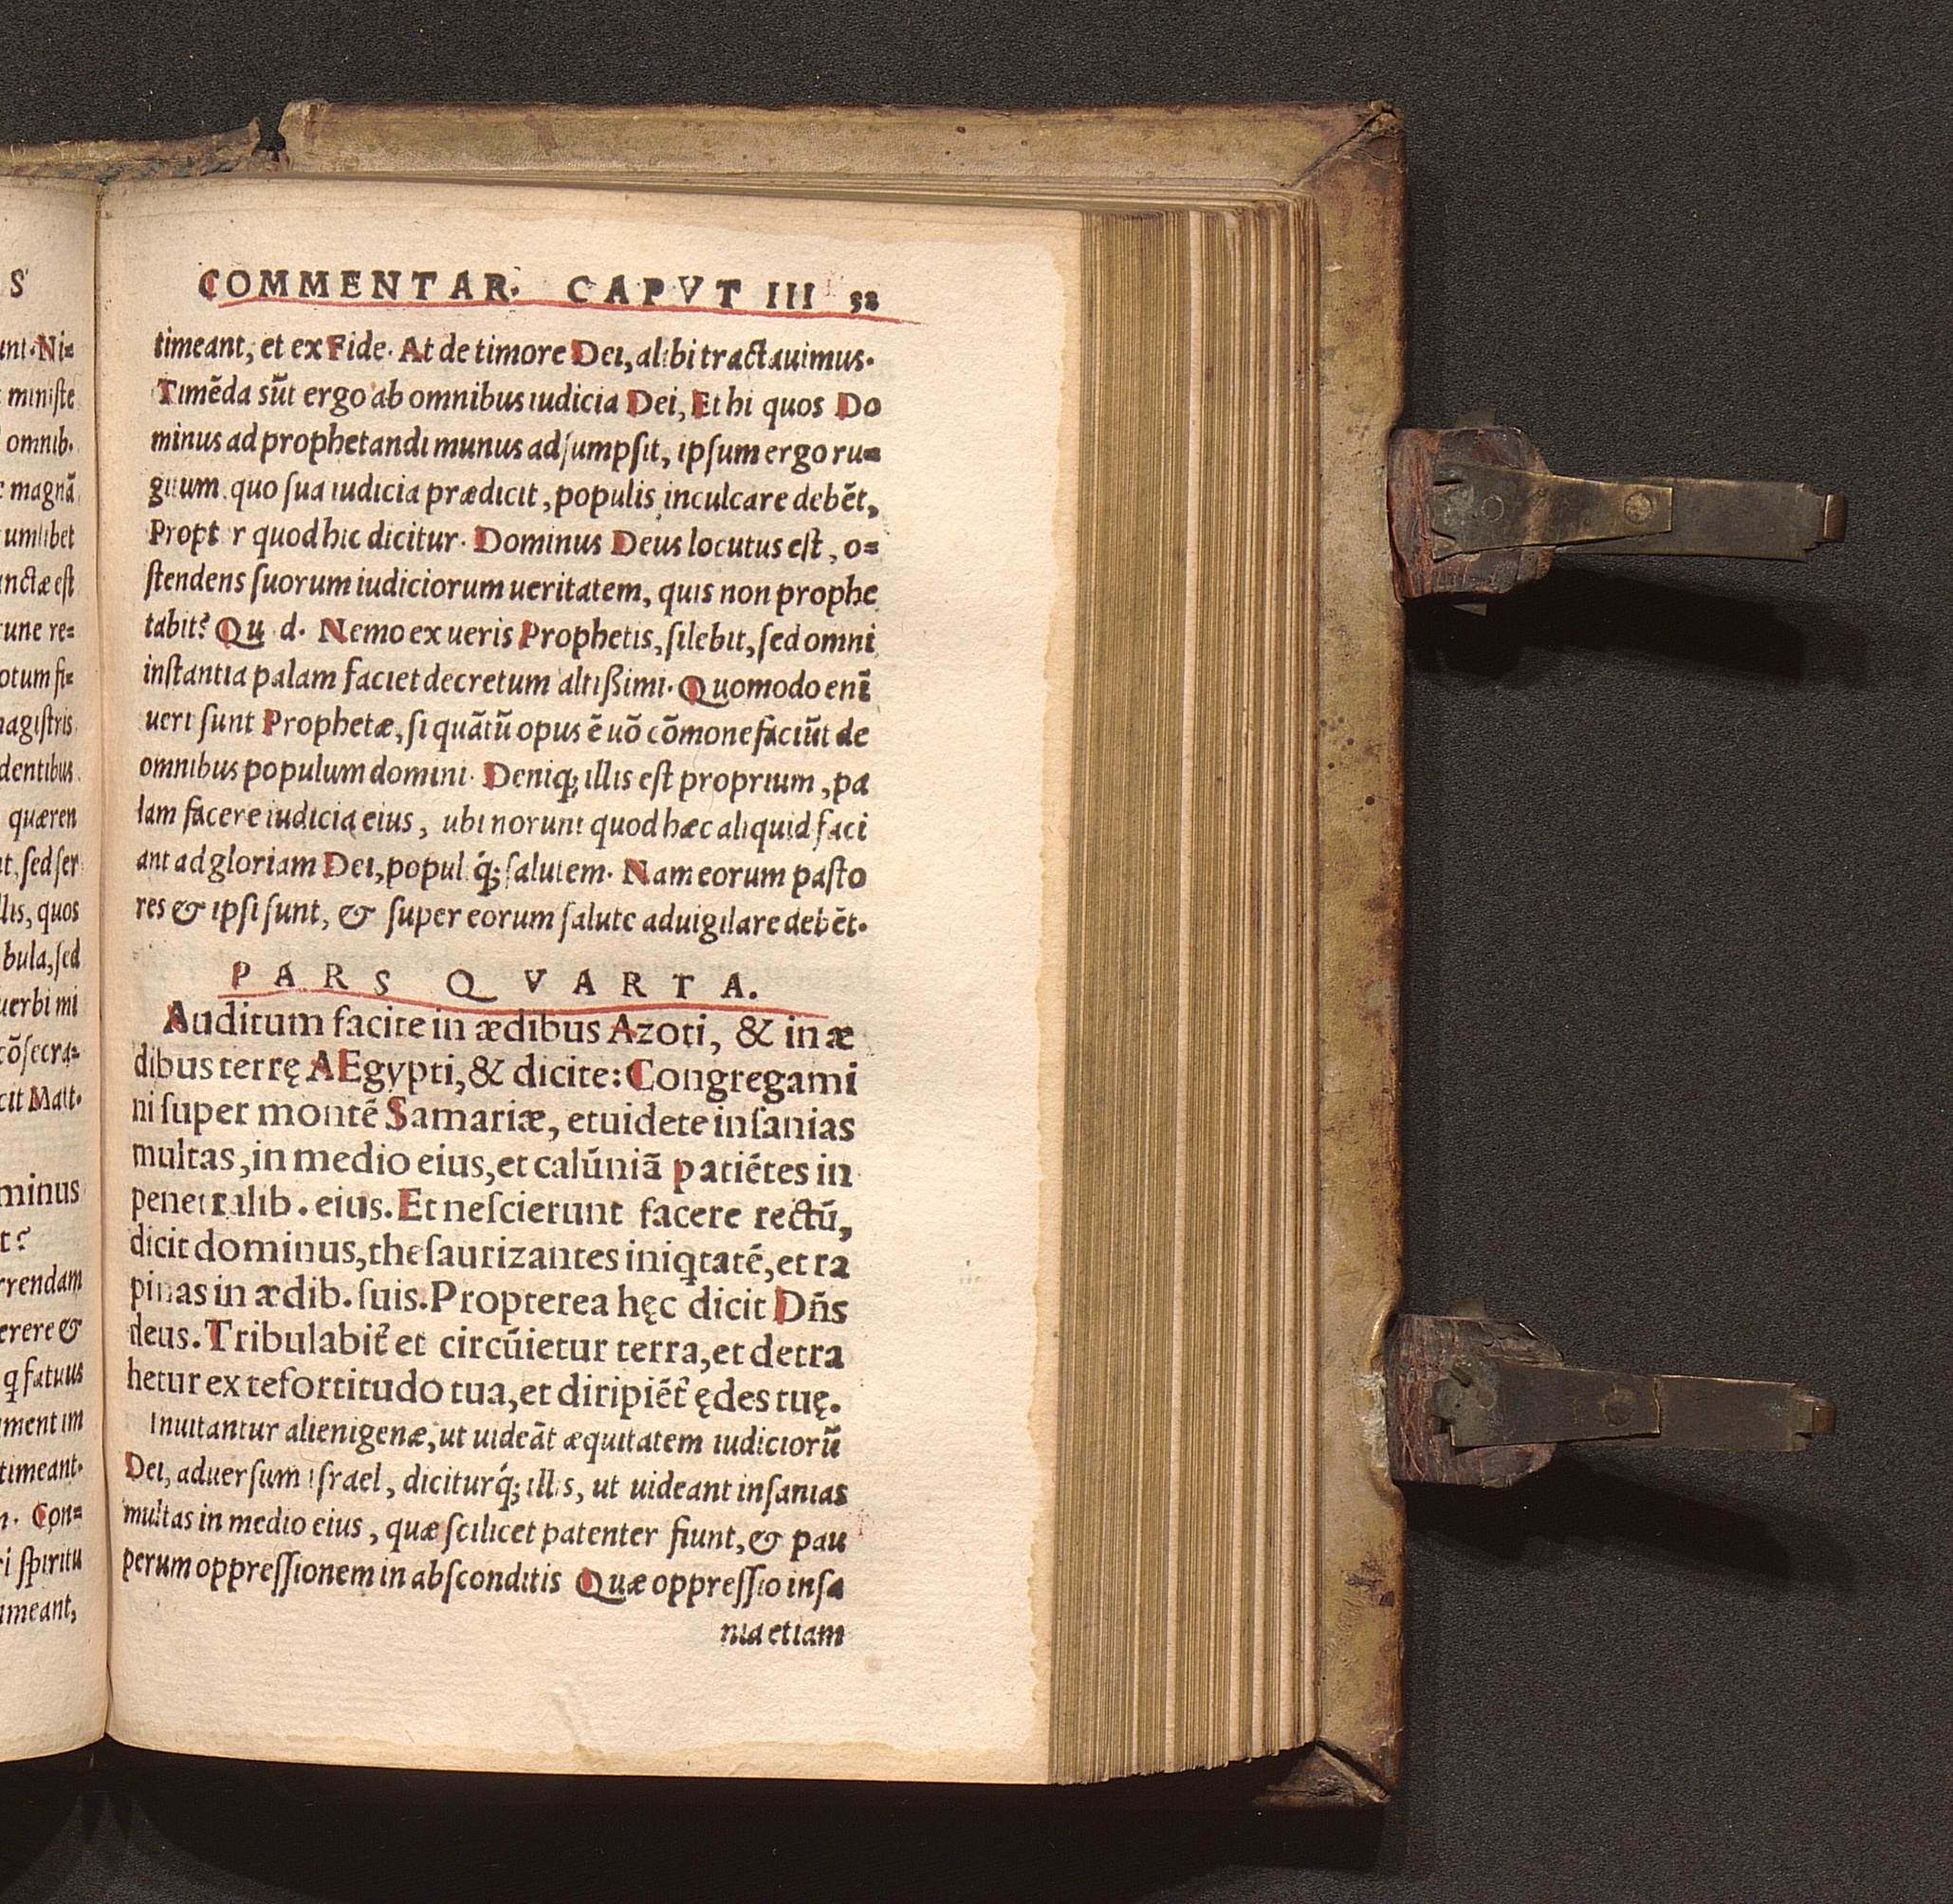 S
unt. Ni=
miniſte
omnib.
magnã
umlibet
nctæ eſt
cune re=
otum fi=
magiſtris
dentibus
quæren
t, ſed ſer
llis, quos
bula, ſed
uerbi mi
cõſecra=
cit Matt.
minus
t?
rrendam
erere &
ꝗ fatuus
ament im
timeant.
n. Con=
ri ſpiritu
imeant,
COMMENTAR. CAPVT III 52
timeant, et ex Fide. At de timore Dei, alibi tractauimus.
Timẽda sũt ergo ab omnibus iudicia Dei, Et hi quos Do
minus ad prophetandi munus adſumpſit, ipſum ergo ru=
gitum quo ſua iudicia prædicit, populis inculcare debẽt,
Propt r quod hic dicitur. Dominus Deus locutus eſt, o=
ſtendens ſuorum iudiciorum ueritatem, quis non prophe
tabit? Qu d. Nemo ex ueris Prophetis, ſilebit, ſed omni
inſtantia palam faciet decretum altiſſimi. Quomodo enĩ
ueri ſunt Prophetæ, ſi quãtũ opus ẽ uõ cõmonefaciũt de
omnibus populum domini. Deniq; illis eſt proprium, pa
lam facere iudicia eius, ubi norunt quod hæc aliquid faci
ant ad gloriam Dei, popul q́; ſalutem. Nam eorum paſto
res & ipſi ſunt, & ſuper eorum ſalute aduigilare debẽt.
PARS QVARTA.
Auditum facite in ædibus Azoti, & in æ
dibus terrę AEgypti, & dicite: Congregami
ni ſuper montẽ Samariæ, et uidete inſanias
multas, in medio eius, et calũniã patiẽtes in
penetralib. eius. Et neſcierunt facere rectũ,
dicit dominus, theſaurizantes iniqtatẽ, et ra
pinas in ædib. ſuis. Propterea hęc dicit Dñs
deus. Tribulabit᷑ et circũietur terra, et detra
hetur ex te fortitudo tua, et diripiẽt᷑ ędes tuę.
Inuitantur alienigenæ, ut uideãt æquitatem iudiciorũ
Dei, aduerſum iſrael, dicitur q́; illis, ut uideant inſanias
multas in medio eius, quæ ſcilicet patenter fiunt, & pau
perum oppreſſionem in abſconditis Quæ oppreſſio inſa
nia etiam